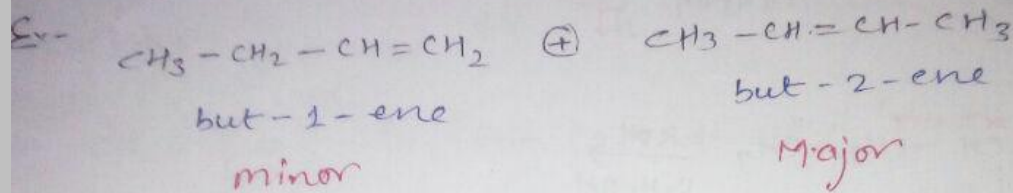 Ex-
CH3 - CH2 - CH = CH2 + CH3 - CH = CH - CH3
but - 1 - ene but - 2 - ene
minor Major